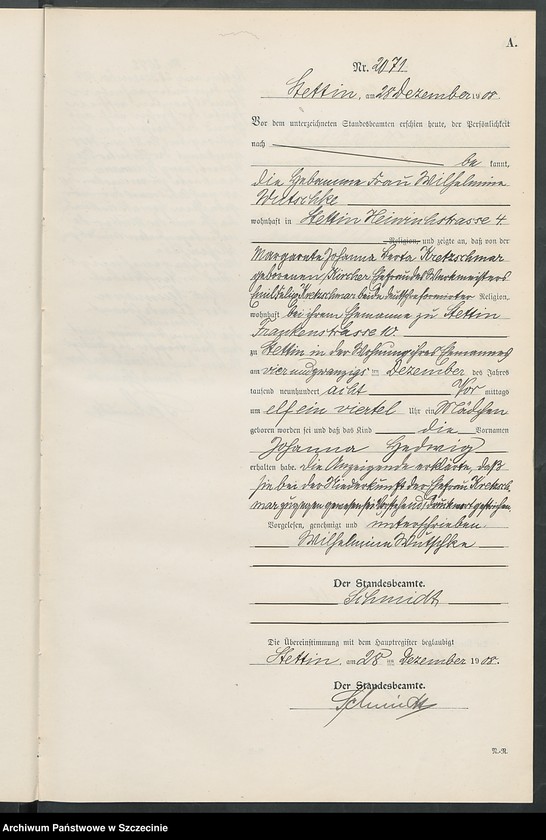 A.
Nr. 2071
Stettin, am 28 Dezember 1908.
Vor dem unterzeichneten Standesbeamten erschien heute, der Persönlichkeit
nach
be kannt,
die Hebamme Frau Wilhelmine
Wutschke
wohnhaft in Stettin Heinrichstrasse 4
Religion, und zeigte an, daß von der
Margarete Johanna Berta Kretzschmar
geborenen Kircher Ehefrau des Werkmeisters
Emil Kretzschmar beide Religion,
wohnhaft bei ihrem Ehemanne zu Stettin
Frankenstrasse 10
zu Stettin in der Wohnung ihres Ehemannes
am vier und zwanzigs ten Dezember des Jahres
tausend neunhundert acht Vor mittags
um elf ein viertel Uhr ein Mädchen
geboren worden sei und daß das Kind die Vornamen
Johanna Hedwig
erhalten habe. Die Anzeigende erklärte, daß
sie bei der Niederkunft der Ehefrau Kretzsch
mar zugegen gewesen sei. Vorstehend Druckwort gestrichen.
Vorgelesen, genehmigt und unterschrieben
Wilhelmine Wutschke
Der Standesbeamte.
Schmidt
Die Übereinstimmung mit dem Hauptregister beglaubigt
Stettin, am 28 ten Dezember 1908.
Der Standesbeamte.
Schmidt
N.-R.
Archiwum Państwowe w Szczecinie